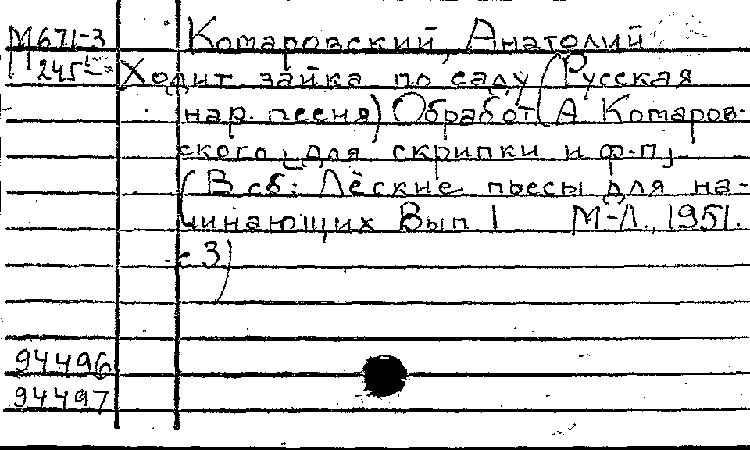 М671-3 Комаровский, Анатолий
245 Ходит зайка по саду (Русская
нар. песня) Обработ. (А Комаров-
ского) для скрипки и ф-п,
(В сб: Лёгкие пьесы для на-
чинающих Вып 1 М-Л., 1951.
с 3)
94496
94497